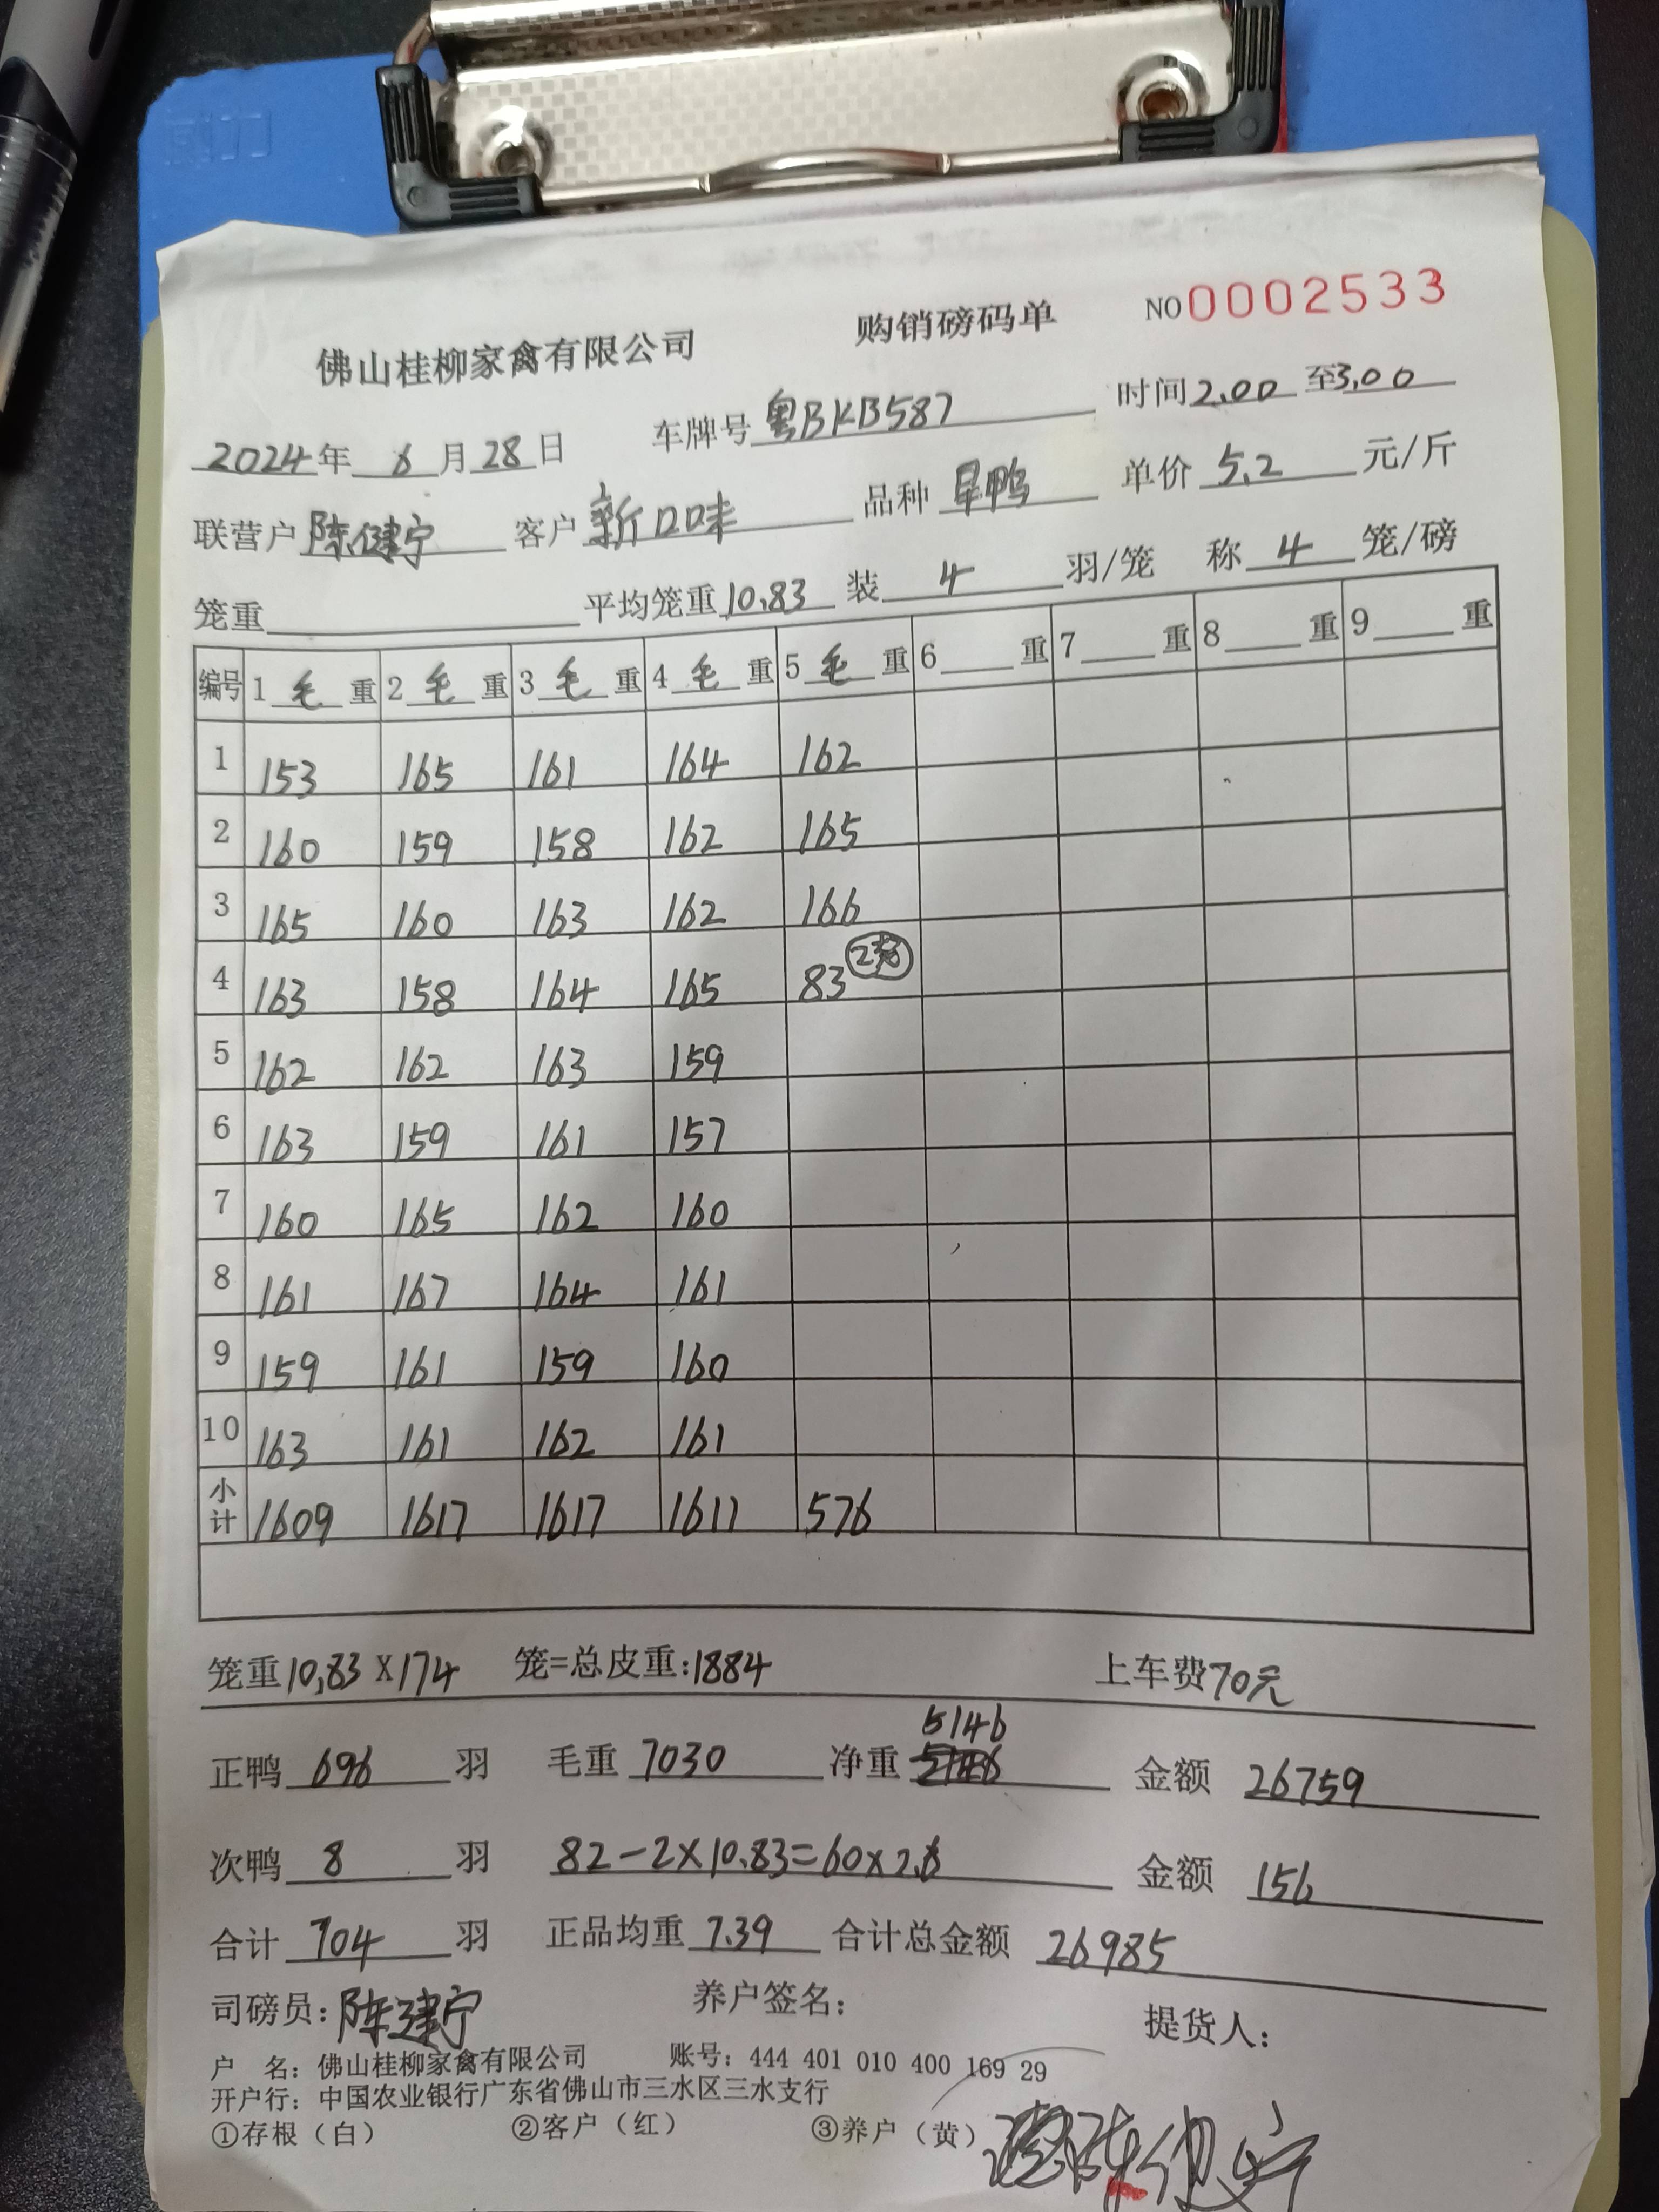 佛山桂柳家禽有限公司 购销磅码单 NO 0002533
2024年 6月 28日 车牌号 粤BKB587 时间 2.00 至 3.00
联营户 陈健宁 客户 新口味 品种 旱鸭 单价 5.2 元/斤
笼重 平均笼重 10.83 装 4 羽/笼 称 4 笼/磅
编号 1 毛 重 2 毛 重 3 毛 重 4 毛 重 5 毛 重 6 重 7 重 8 重 9 重
1 153 165 161 164 162
2 160 159 158 162 165
3 165 160 163 162 166
4 163 158 164 165 83 2笼
5 162 162 163 159
6 163 159 161 157
7 160 165 162 160
8 161 167 164 161
9 159 161 159 160
10 163 161 162 161
小计 1609 1617 1617 1611 576
笼重 10.83 X 174 笼=总皮重: 1884 上车费 70元
正鸭 696 羽 毛重 7030 净重 5146 金额 26759
次鸭 8 羽 82-2×10.83=60×2.6 金额 156
合计 704 羽 正品均重 7.39 合计总金额 26985
司磅员: 陈建宁 养户签名: 提货人:
户 名: 佛山桂柳家禽有限公司 账号: 444 401 010 400 169 29
开户行: 中国农业银行广东省佛山市三水区三水支行
①存根（白） ②客户（红） ③养户（黄）